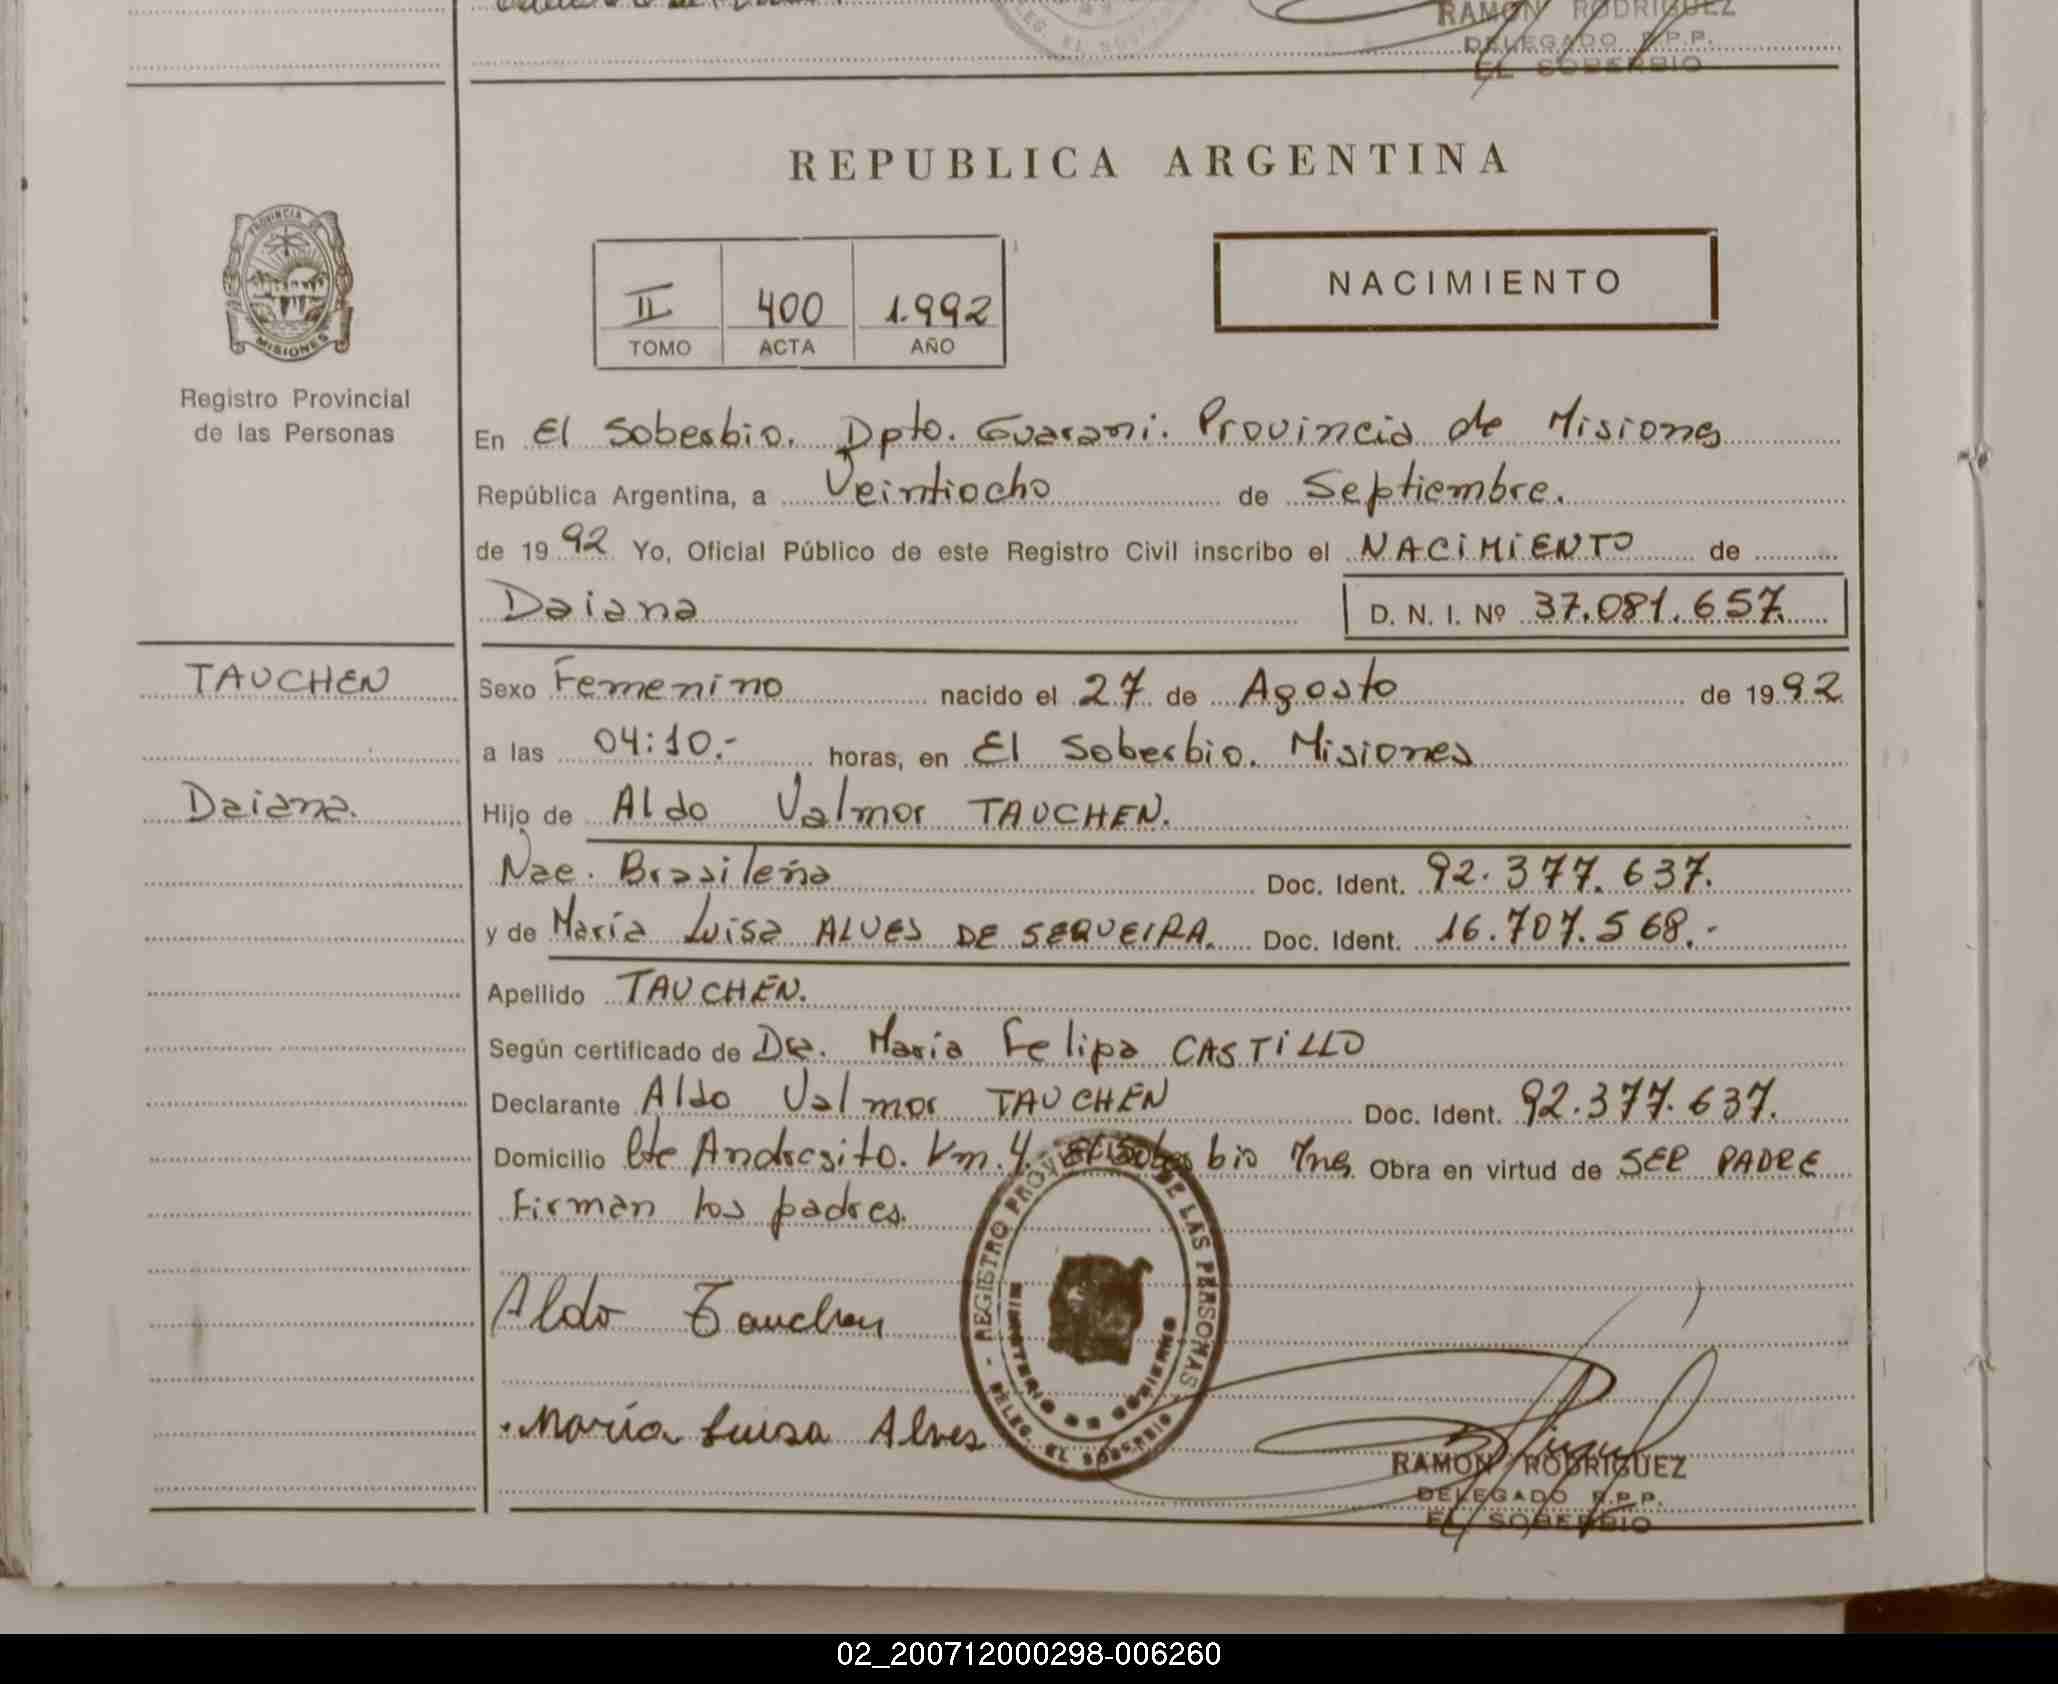 RAMON RODRIGUEZ
DELEGADO R.P.P.
EL SOBERBIO
REPUBLICA ARGENTINA
PROVINCIA DE
MISIONES
Registro Provincial
de las Personas
II 400 1.992
TOMO ACTA AÑO
NACIMIENTO
En El Soberbio. Dpto. Guarani. Provincia de Misiones
República Argentina, a Veintiocho de Septiembre.
de 1992 Yo, Oficial Público de este Registro Civil inscribo el NACIMIENTO de
Daiana D. N. I. Nº 37.081.657.
TAUCHEN
Daiana.
Sexo Femenino nacido el 27 de Agosto de 1992
a las 04:10.- horas, en El Soberbio. Misiones
Hijo de Aldo Valmor TAUCHEN.
Nac. Brasileña Doc. Ident. 92.377.637.
y de María Luisa ALVES DE SEQUEIRA. Doc. Ident. 16.707.568.-
Apellido TAUCHEN.
Según certificado de Dra. Maria Felipa CASTILLO
Declarante Aldo Valmor TAUCHEN Doc. Ident. 92.377.637.
Domicilio Cte Andresito. Km. 4. El Soberbio Mnes. Obra en virtud de SER PADRE
Firman los padres.
Aldo Tauchen
María Luisa Alves
- REGISTRO PROVINCIAL DE LAS PERSONAS -
MINISTERIO DE GOBIERNO
DELEG. EL SOBERBIO
RAMON RODRIGUEZ
DELEGADO R.P.P.
EL SOBERBIO
02_200712000298-006260